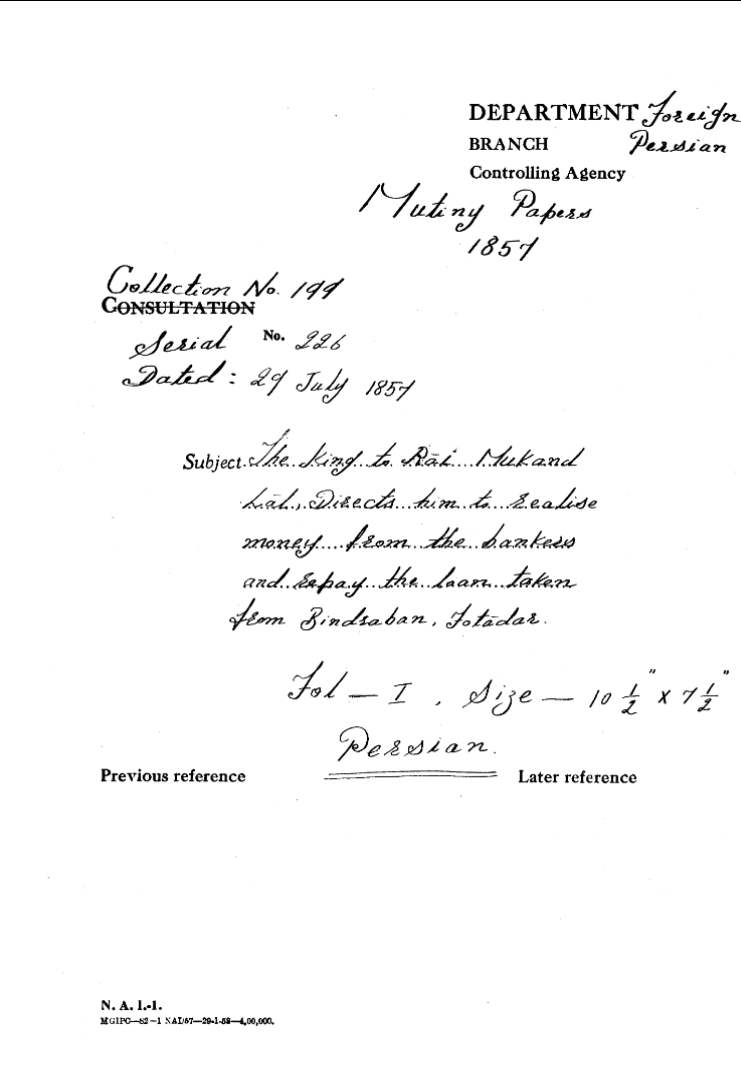 DEPARTMENT Foreign
BRANCH Persian
Controlling Agency
Mutiny Papers
1857
Collection No. 199
CONSULTATION
Serial No. 226
Dated : 29 July 1857
Subject. The King to Rāi Mukand
Lāl, Directs him to realise
money from the bankers
and repay the loan taken
from Bindraban, Fotādar.
Fol — I , Size — 10 1/2" x 7 1/2"
Persian.
Previous reference Later reference
N. A. I.-1.
MGIPC—S2—1 NAI/57—29-1-58—4,00,000.